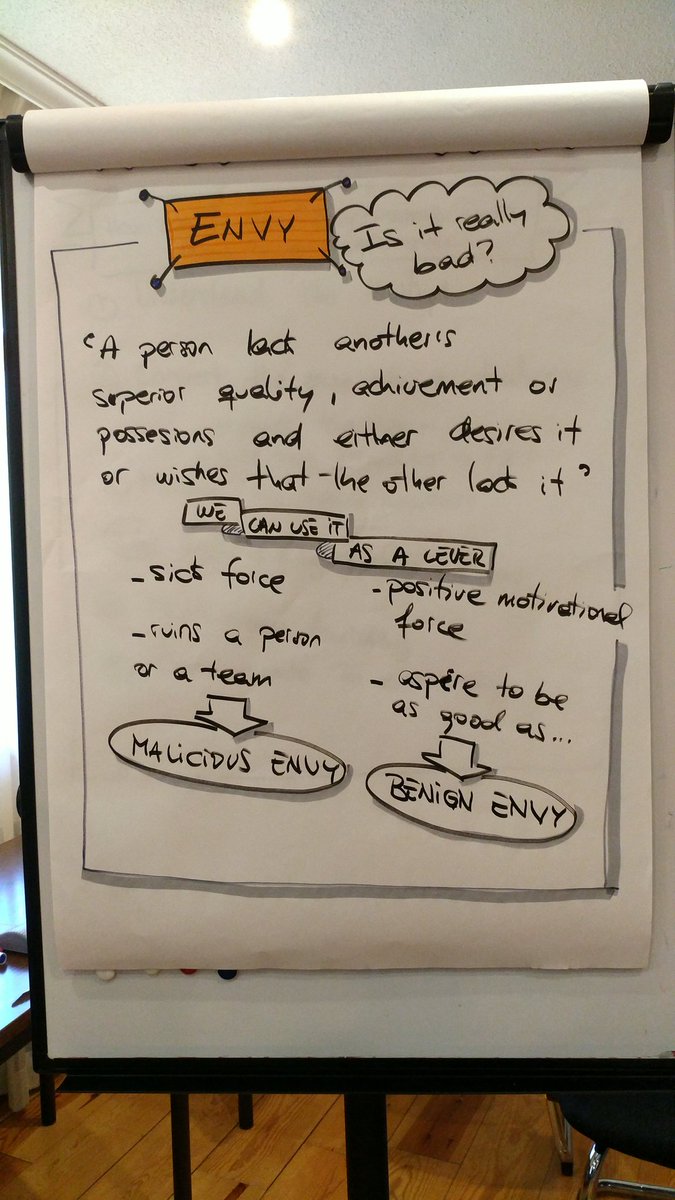 ENVY
Is it really
bad?
‘A person lack another's
superior quality, achivement or
possesions and either desires it
or wishes that the other lack it’
WE
CAN USE IT
AS A LEVER
- sick force
- ruins a person
or a team
MALICIOUS ENVY
- positive motivational
force
- aspire to be
as good as...
BENIGN ENVY